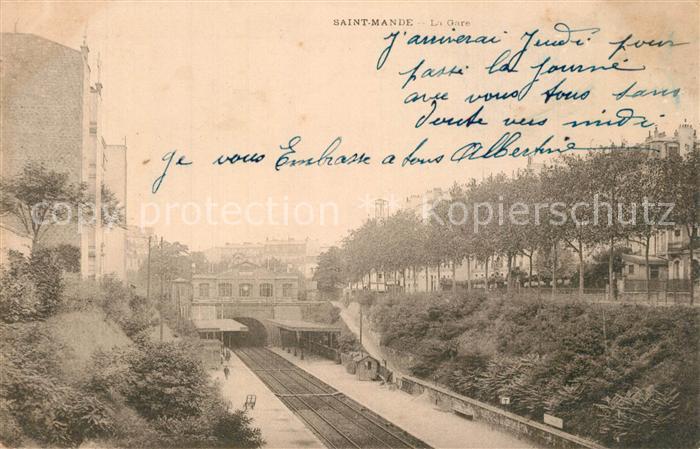 SAINT-MANDE - La Gare
j'arriverai Jeudi pour
passé la Journé
avec vous tous sans
doute vers midi
je vous Embrasse a tous Albertine
copy protection * Kopierschutz